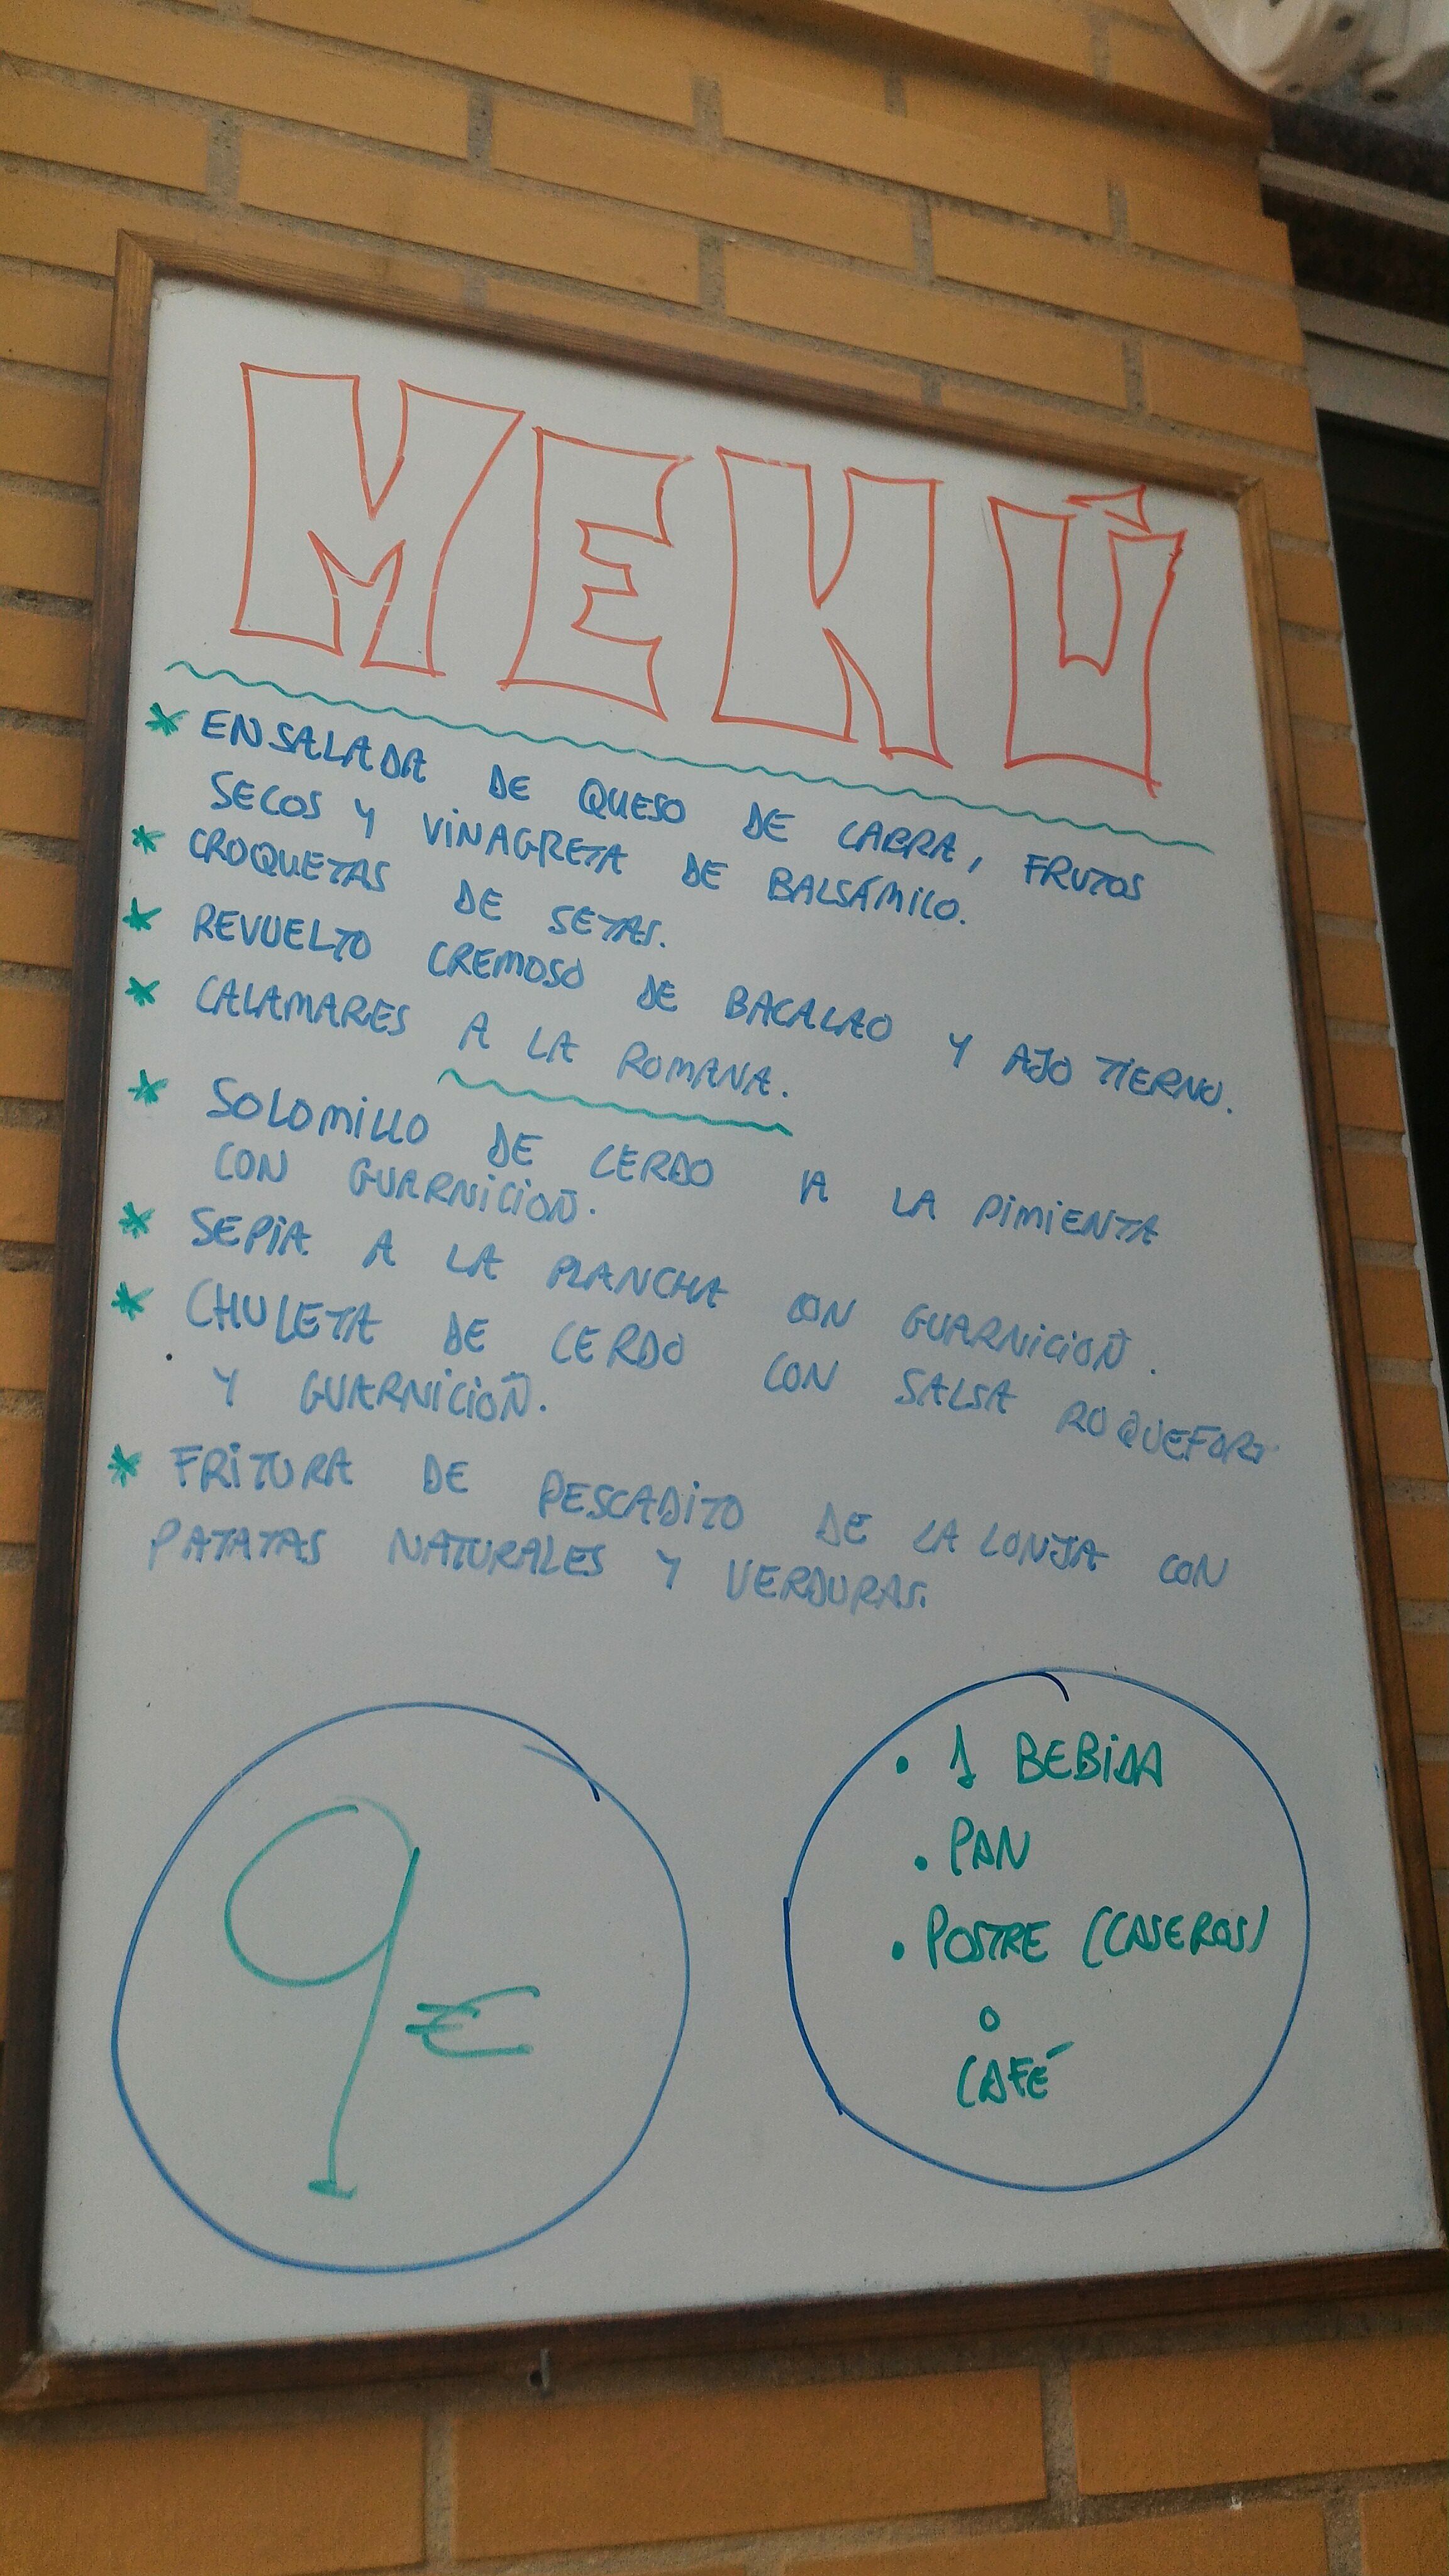 MENÚ
* ENSALADA DE QUESO DE CABRA, FRUTOS
SECOS Y VINAGRETA DE BALSÁMICO.
* CROQUETAS DE SETAS.
* REVUELTO CREMOSO DE BACALAO Y AJO TIERNO.
* CALAMARES A LA ROMANA.
* SOLOMILLO DE CERDO A LA PIMIENTA
CON GUARNICIOÑ.
* SEPIA A LA PLANCHA CON GUARNICIOÑ.
* CHULETA DE CERDO CON SALSA ROQUEFORT
Y GUARNICIOÑ.
* FRITURA DE PESCADITO DE LA LONJA CON
PATATAS NATURALES Y VERDURAS.
9€
• 1 BEBIDA
• PAN
• POSTRE (CASEROS)
o
CAFÉ